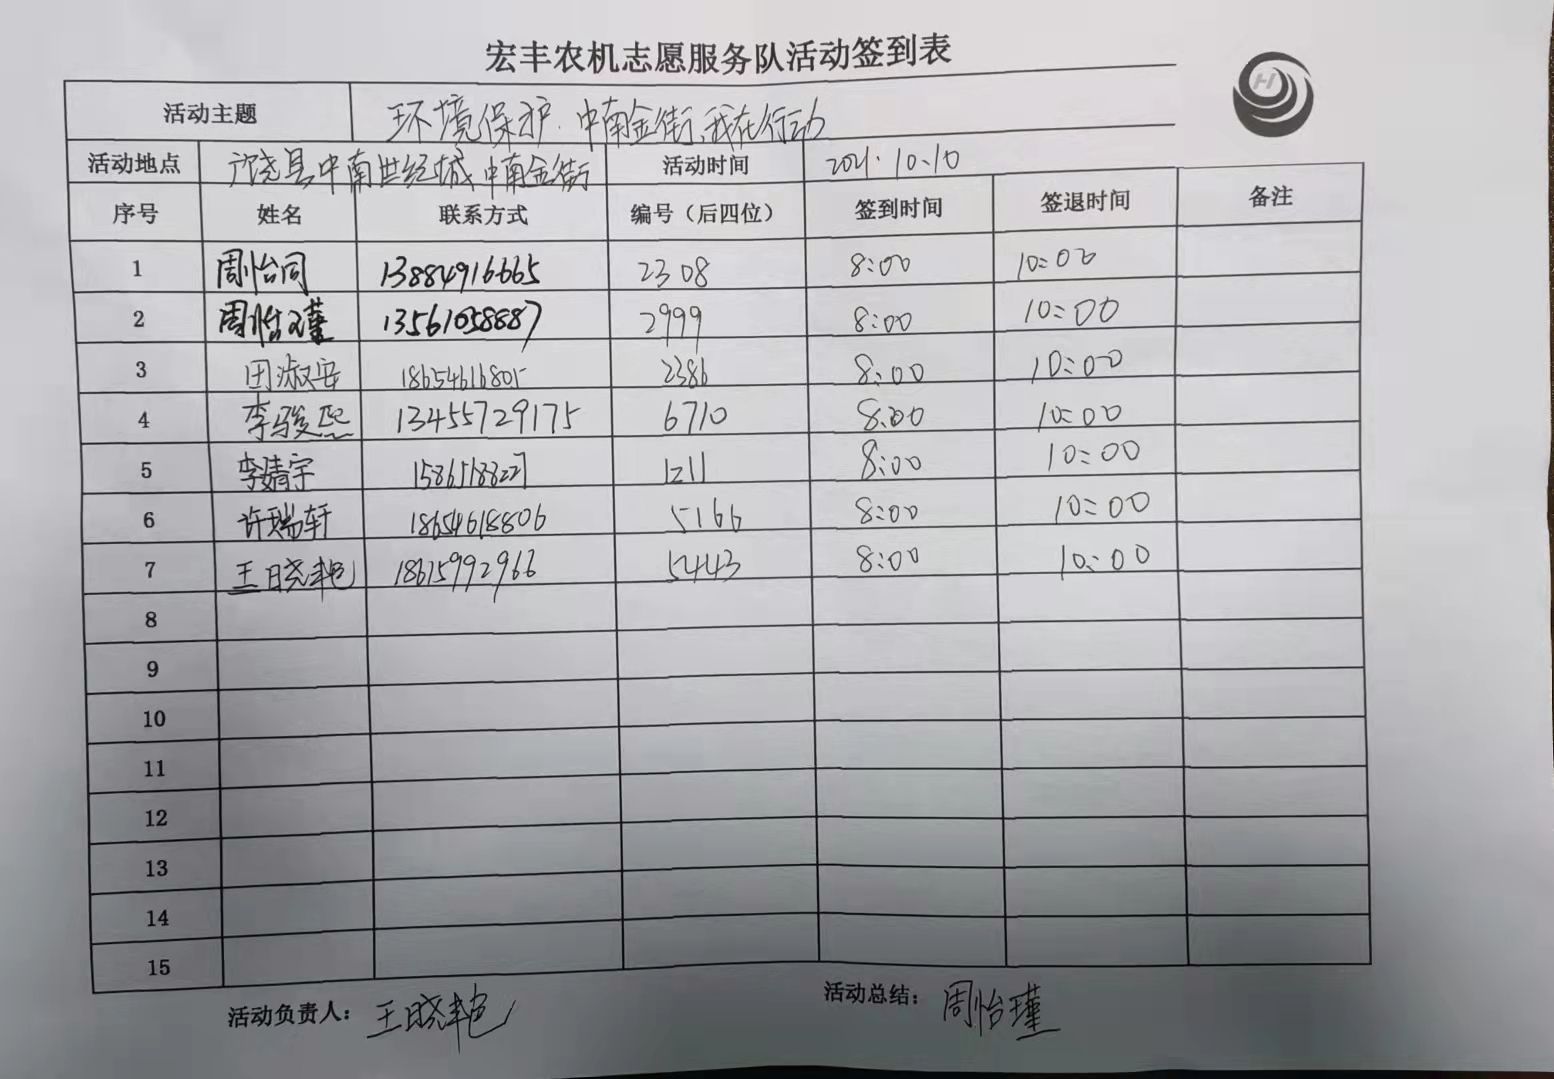 宏丰农机志愿服务队活动签到表
H
活动主题 环境保护.中南金街,我在行动
活动地点 广饶县中南世纪城中南金街 活动时间 2021.10.10
序号 姓名 联系方式 编号（后四位） 签到时间 签退时间 备注
1 周怡同 13884916665 2308 8:00 10:00
2 周怡瑾 13561058887 2999 8:00 10:00
3 田淑安 18654616805 2386 8:00 10:00
4 李骏熙 13455729175 6710 8:00 10:00
5 李婧宇 1211 8:00 10:00
6 许瑞轩 18654618806 5166 8:00 10:00
7 王晓艳 18615992966 5443 8:00 10:00
8
9
10
11
12
13
14
15
活动负责人：王晓艳 活动总结：周怡瑾